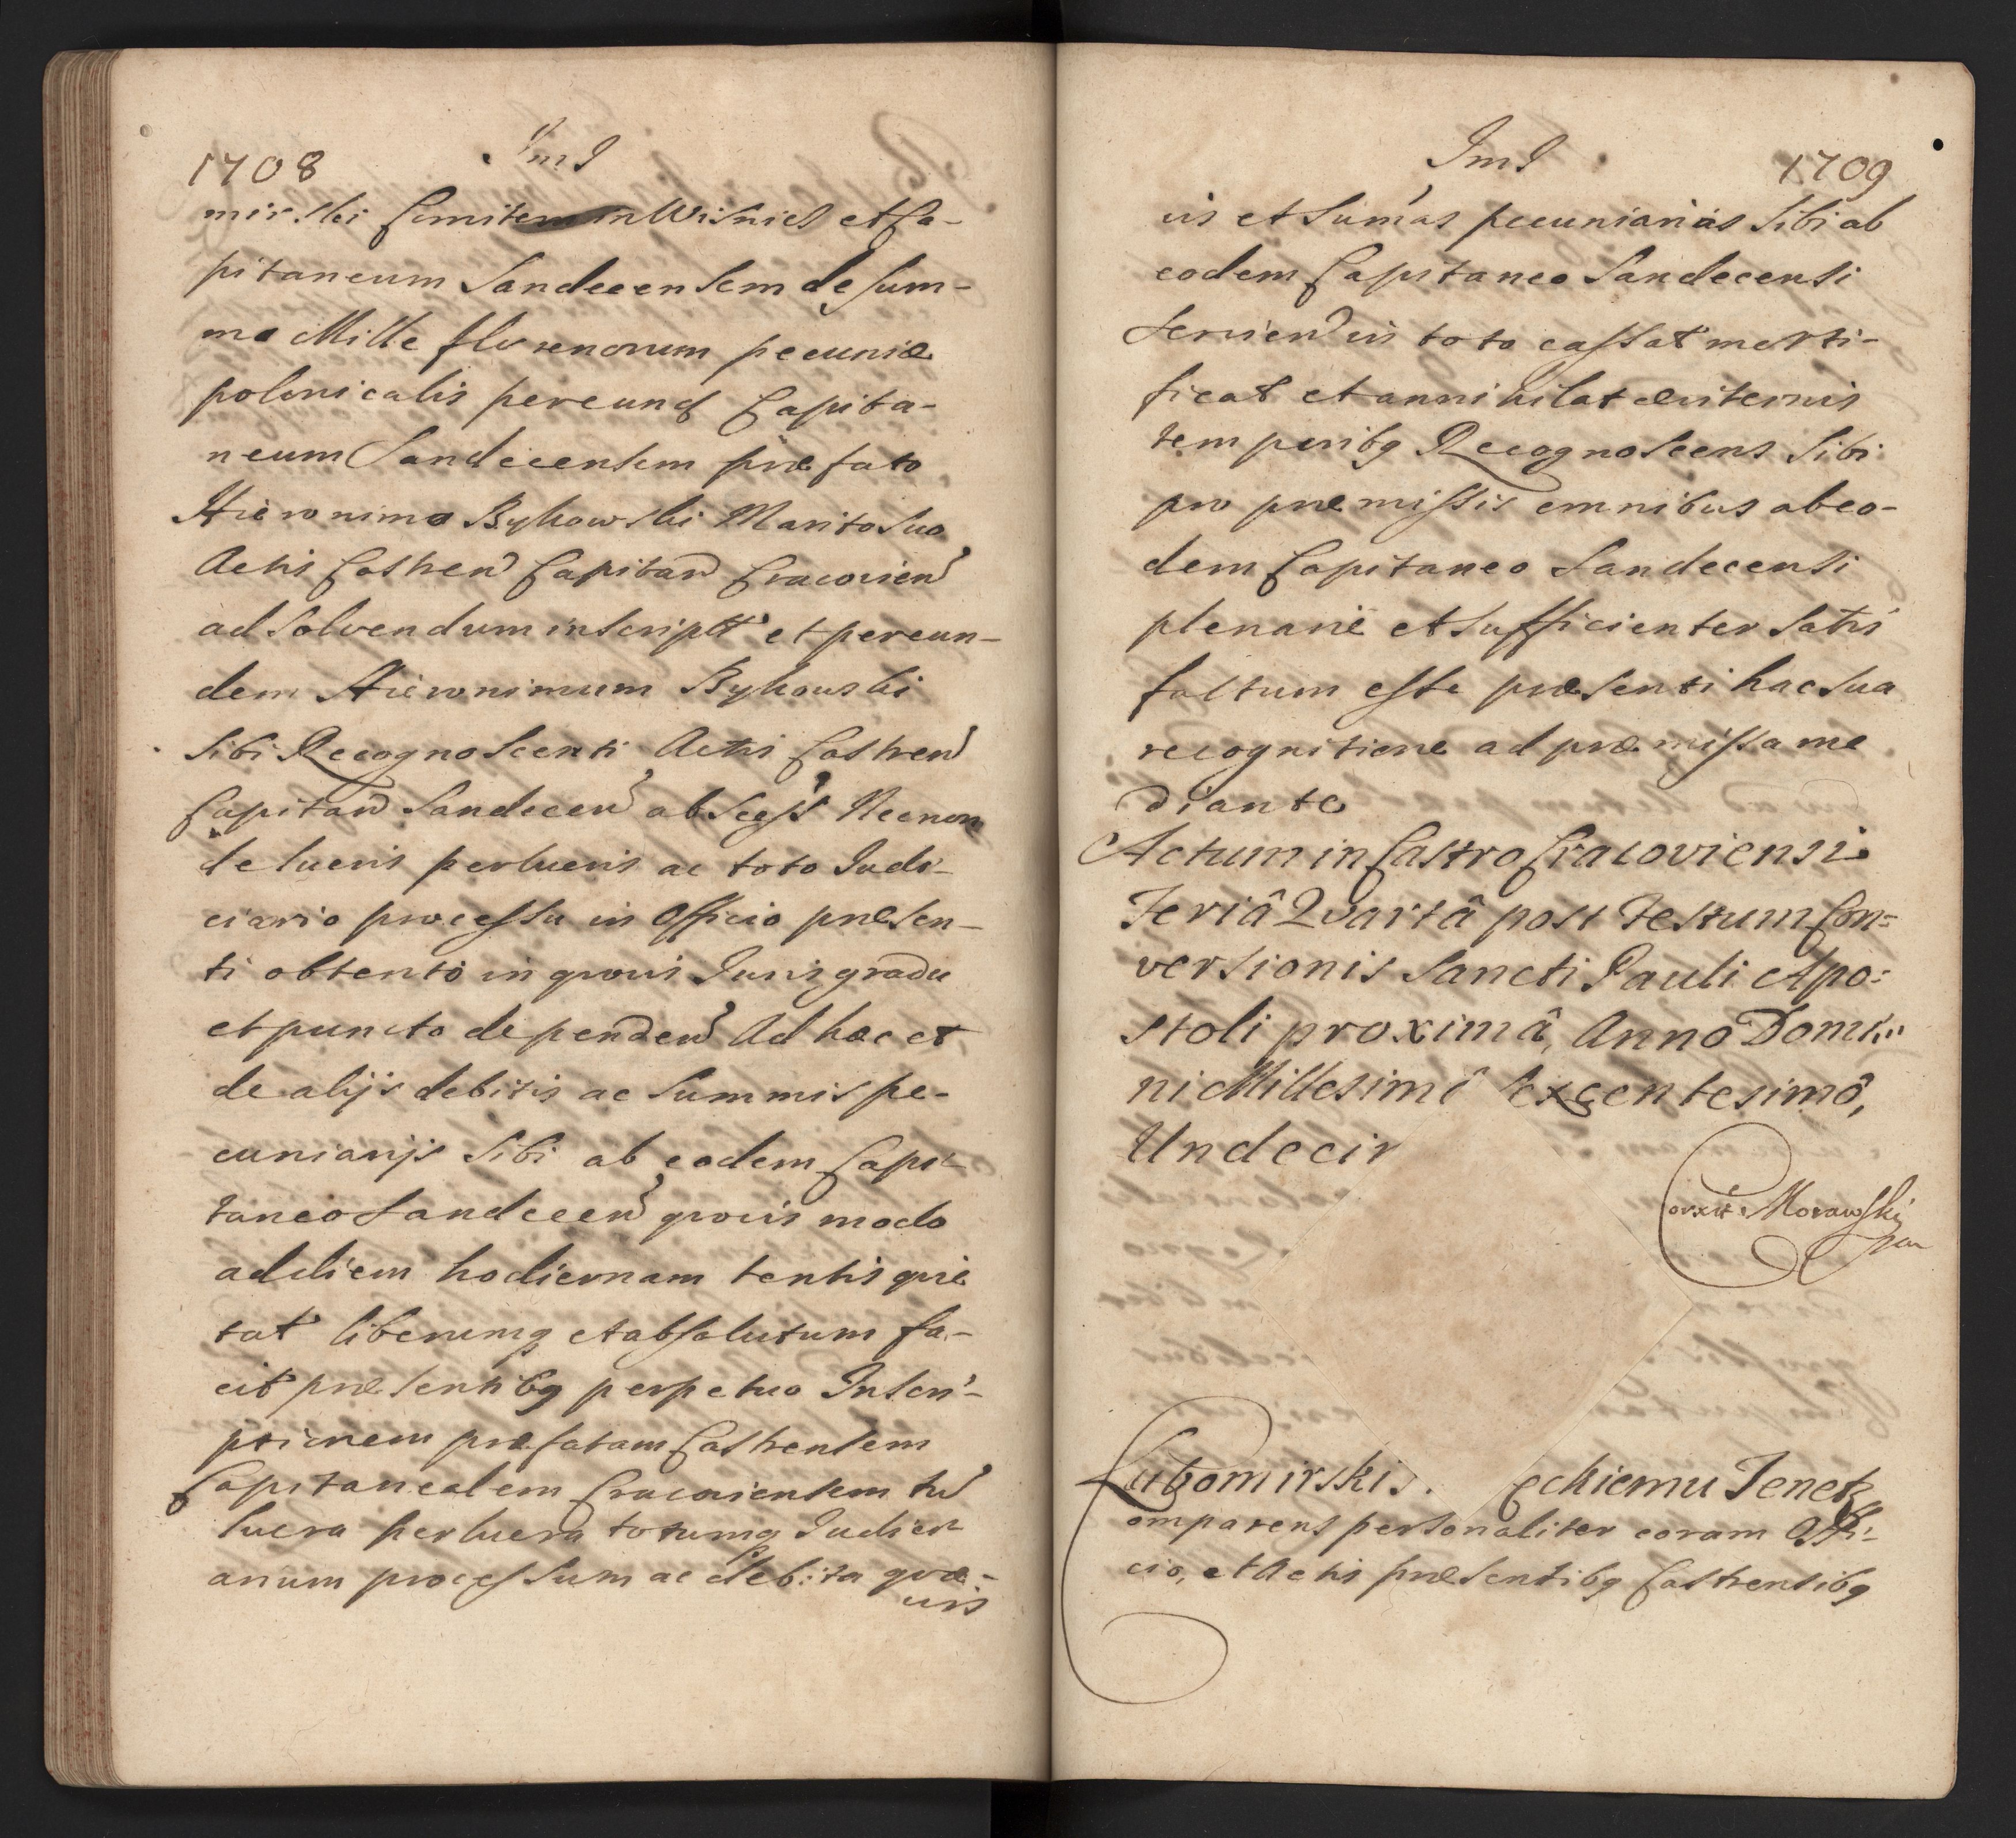 1708
mirski Comitem in Wisnicz et Ca-
pitaneum Sandecensem de sum-
ma Mille florenorum pecuniæ
polonicalis per eund Capita-
neum Sandecensem præfato
Hieronimo Bykowski Marito suo
Actis Castren Capitan Cracovien
ad solvendum inscript et per eun-
dem Hieronimum Bykowski
sibi Recognoscenti Actis Castren
Capitan Sandecen Necnon
de lucris perlucris ac toto Judi-
ciario processu in Officio præsen-
ti obtento in quovis Juris gradu
et puncto dependen Ad hæc et
de alijs debitis ac summis pe-
cuniarijs sibi ab eodem Capi-
taneo Sandecen quovis modo
ad diem hodiernam tentis quie
tat liberumq et absolutum fa-
cit præsentibq perpetuo Inscri-
ptionem præfatam Castrensem
Capitanealem Cracoviensem
lucra perlucra totumq Judici
arium processum ac debita quæ-
vis
1709
vis et sumas pecuniarias sibi ab
eodem Capitaneo Sandecensi
servien in toto cassat morti-
ficat et annihilat æviternis
temporibq Recognoscens sibi
pro præmissis omnibus ab eo-
dem Capitaneo Sandecensi
plenarie et sufficienter satis
factum esse præsenti hac sua
recognitione ad præmissa me
diante
Actum in Castro Cracoviensi
Feriâ Quartâ post Festum Con-
versionis Sancti Pauli Apo-
stoli proximâ, Anno Domi-
ni Millesimô Sexcentesimô,
Undecim
Corxit Morawski
Lubomirski
Comparens personaliter coram Offi-
cio, et Actis præsentibq Castrensibq